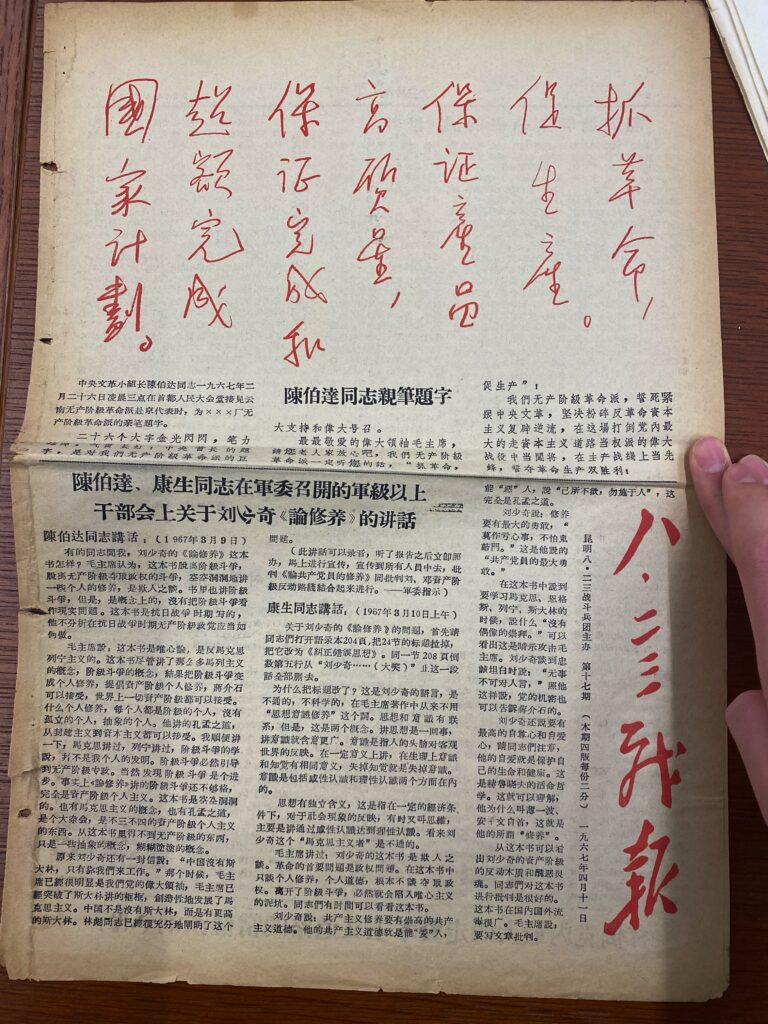 抓革命，
促生產。
保证產品
高质量，
保证完成和
超额完成
國家计劃。
陳伯達同志親筆題字
中央文革小組长陳伯达同志一九六七年二
月二十六日凌晨三点在首都人民大会堂接見云
南无产阶級革命派赴京代表时，为×××厂无
产阶級革命派的亲笔題字。
二十六个大字金光閃閃，笔力
大支持和偉大号召。
最最敬爱的偉大領袖毛主席，
請您老人家放心吧，我們无产阶級
革命派一定听您的話，“抓革命，
促生产”！
我們无产阶級革命派，誓死紧
跟中央文革，坚决粉碎反革命資本
主义复辟逆流，在这場打倒党內最
大的走資本主义道路当权派的偉大
战役中当闖将，在生产战綫上当先
鋒，誓夺革命生产双胜利！
陳伯達、康生同志在軍委召開的軍級以上
干部会上关于刘少奇《論修养》的讲話
陳伯达同志講話：（1967年3月9日）
有的同志問我，刘少奇的《論修养》这本
书怎样？毛主席认为，这本书脱离阶級斗爭，
脱离无产阶級夺取政权的斗爭，空空洞洞地讲
一些个人的修养，是欺人之談。书里也讲阶級
斗爭，但是，是概念上的，沒有把阶級斗爭看
作現实問題。这本书是抗日战爭时期写的，
他不分析在抗日战爭时期无产阶級政党应当如
何做。
毛主席說，这本书是唯心論，是反馬克思
列宁主义的。这本书尽管讲了那么多馬列主义
的概念，阶級斗爭的概念，結果把阶級斗爭变
成个人修养，提倡資产阶級个人修养，蔣介石
可以接受，世界上一切資产阶級都可以接受。
什么个人修养，每个人都是阶級的个人，沒有
孤立的个人，抽象的个人。他讲的孔孟之道，
从封建主义到資本主义都可以接受。我順便讲
一下，馬克思讲过，列宁讲过，阶級斗爭的学
說，幷不是我个人的发明。阶級斗爭必然引导
到无产阶級专政。当然发現阶級斗爭是个进
步。事实上《論修养》讲的阶級斗爭还不够格，
完全是資产阶級个人主义。这本书是空空洞洞
的。也有馬克思主义的概念，也有孔孟之道，
是个大杂烩，是不三不四的資产阶級个人主义
的东西。从这本书里得不到无产阶級的东西，
只是一些抽象的概念，糊糊塗塗的概念。
原来刘少奇还有一封信說：“中國沒有斯
大林，只有你我們来工作。”那个时候，毛主
席已經很明显是我們党的偉大領袖，毛主席已
經突破了斯大林讲的框框，創造性地发展了馬
克思主义。中國不是沒有斯大林，而是有更高
的斯大林。林彪同志已經很充分地闡明了这个
問題。
（此讲話可以录音，听了报告之后立即照
办，馬上进行宣传，宣传到所有人員中去；批
判《論共产党員的修养》同批判刘、邓資产阶
級反动路綫結合起来进行。——軍委指示）
康生同志講話：（1967年3月10日上午）
关于刘少奇的《論修养》的問題，首先請
同志們打开語录本204頁，把24节的标題拉掉，
把它改为《糾正錯誤思想》。同一节208頁倒
数第五行从“刘少奇……（大笑）”止这一段
話全部删去。
为什么把标題改了？这是刘少奇的語言，是
不通的，不科学的，在毛主席著作中从来不用
“思想意識修养”这个詞。思想和意識有联
系，但是，这是两个概念。讲思想是一回事，
讲意識就含意更广。意識是指人的头脑对客观
世界的反映。在一定意义上讲，在生理上意識
和知觉有相同意义，失掉知觉就是失掉意識。
意識是包括感性认識和理性认識两个方面在內
的。
思想有独立含义，这是指在一定的經济条
件下，对于社会現象的反映，有时又叫思維，
主要是讲通过感性认識达到理性认識。看来刘
少奇这个“馬克思主义者”是不通的。
毛主席讲过，刘少奇的这本书是欺人之
談。革命的首要問題是政权問題。在这本书中
只談个人修养，个人道德，根本不談夺取政
权。离开了阶級斗爭，必然就会陷入唯心主义
的泥坑。同志們有时間可以看看这本书。
刘少奇說：共产主义修养要有崇高的共产
主义道德。他的共产主义道德就是能“爱”人，
能“恶”人，說“己所不欲，勿施于人”，这
完全是孔孟之道。
刘少奇說：修养
要有最大的勇敢，“
莫作亏心事，不怕鬼
敲門。”这是他說的
“共产党員的最大勇
敢。”
在这本书中說到
要学习馬克思、恩格
斯、列宁、斯大林的
时候，說什么“沒有
偶像的崇拜。”可以
看出这是暗示攻击毛
主席。刘少奇談到忠
誠坦白时說：“无事
不可对人言，”照他
这样說，党的机密也
可以告訴蔣介石的。
刘少奇还說要有
最高的自尊心和自爱
心，請同志們注意，
他的自爱就是保护自
己的生命和健康。这
是赫魯曉夫的活命哲
学。这就可以理解，
他为什么叫薄一波、
安子文自首，这就是
他的所謂“修养”。
从这本书可以看
出刘少奇的資产阶級
的反动本质和醜恶灵
魂。同志們对这本书
进行批判是很好的。
这本书在国內国外流
毒很广。毛主席說，
要写文章批判。
昆明八·二三战斗兵团主办 第十七期 （本期四版每份二分） 一九六七年四月十一日
八·二三战报